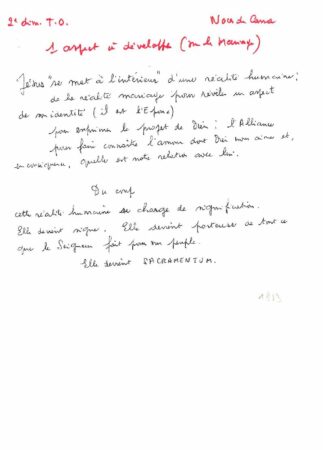 2e dim. T.O. Noces de Cana
1 aspect à développer (sur le Mariage)
Jésus "se met à l'intérieur" d'une réalité humaine :
de la réalité mariage pour révéler un aspect
de son identité (il est l'Epoux)
pour exprimer le projet de Dieu : l'Alliance
pour faire connaître l'amour dont Dieu nous aime et,
en conséquence, quelle est notre relation avec lui.
Du coup
cette réalité humaine se charge de signification.
Elle devient signe. Elle devient porteuse de tout ce
que le Seigneur fait pour son peuple.
Elle devient SACRAMENTUM.